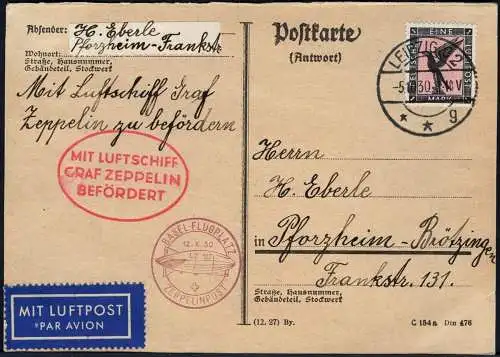 Absender: H. Eberle
Wohnort: Pforzheim-Frankstr
Straße, Hausnummer,
Gebäudeteil, Stockwerk
Mit Luftschiff Graf
Zeppelin zu befördern
MIT LUFTSCHIFF
GRAF ZEPPELIN
BEFÖRDERT
BASEL-FLUGPLATZ
12. X. 30
ZEPPELINPOST
MIT LUFTPOST
PAR AVION
Postkarte
(Antwort)
EINE
MARK
LEIPZIG
30
V
* * g
Herrn
H. Eberle
in Pforzheim-Brötzingen
Frankstr. 131.
Straße, Hausnummer,
Gebäudeteil, Stockwerk
(12. 27) By.
C 154a Din 476